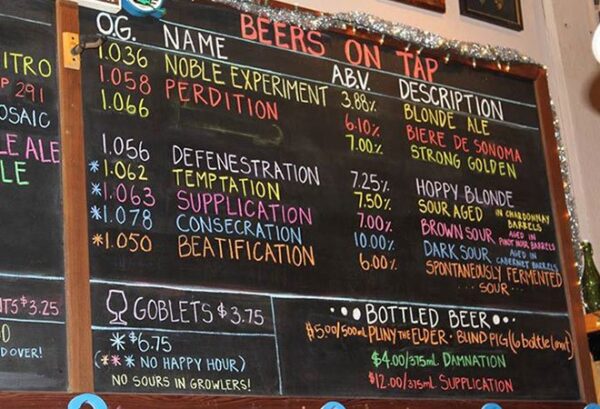 BEERS ON TAP
O.G. NAME ABV. DESCRIPTION
1.036 NOBLE EXPERIMENT 3.88% BLONDE ALE
1.058 PERDITION 6.10% BIERE DE SONOMA
1.066 7.00% STRONG GOLDEN
1.056 DEFENESTRATION 7.25% HOPPY BLONDE
*1.062 TEMPTATION 7.50% SOUR AGED IN CHARDONNAY BARRELS
*1.063 SUPPLICATION 7.00% BROWN SOUR AGED IN PINOT NOIR BARRELS
*1.078 CONSECRATION 10.00% DARK SOUR AGED IN CABERNET BARRELS
*1.050 BEATIFICATION 6.00% SPONTANEOUSLY FERMENTED SOUR
ITRO
P 291
OSAIC
LE ALE
LE
TS $3.25
D OVER!
GOBLETS $3.75
* $6.75
(*** NO HAPPY HOUR)
NO SOURS IN GROWLERS!
BOTTLED BEER
$5.00/500mL PLINY THE ELDER • BLIND PIG (6 bottle limit)
$4.00/375mL DAMNATION
$12.00/375mL SUPPLICATION